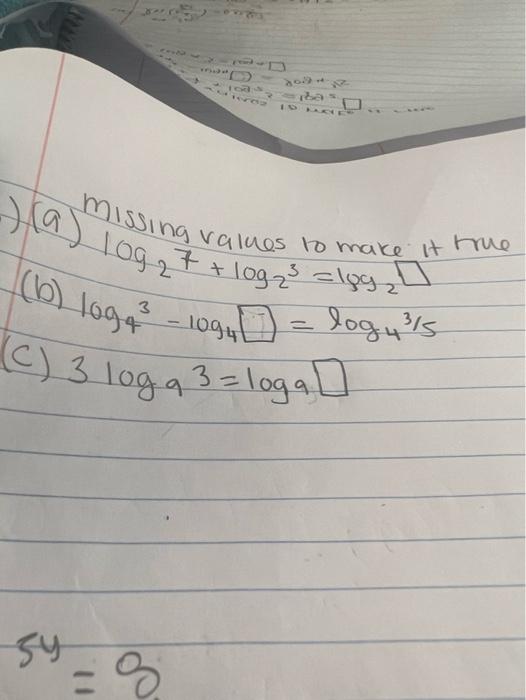 missing values to make it true
) (a) log₂ 7 + log₂ 3 = log₂ □
(b) log₄ 3 - log₄ □ = log₄ 3/5
(c) 3 log 9 3 = log 9 □
5y = 8